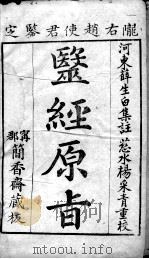 隴右趙使君鑒定
河東薛生白集註 慈水楊采青重校
毉經原旨
寧郡簡香齋藏板
mtoou.info